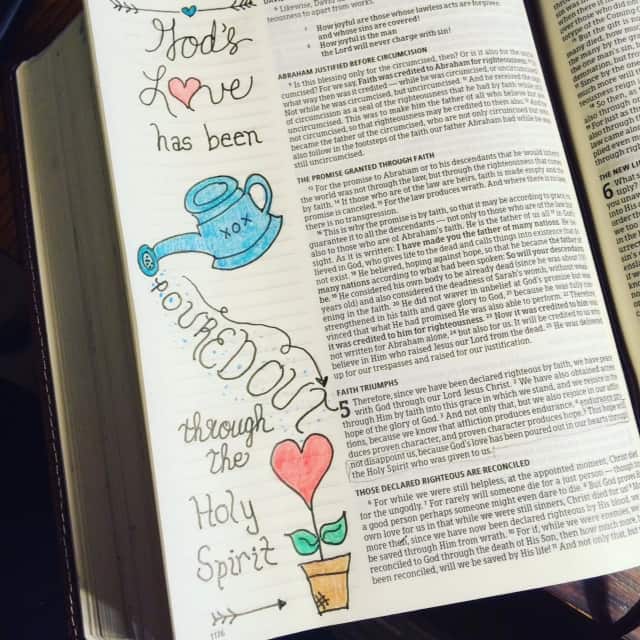 God's
Love
has been
XOX
POURED OUT
through
the
Holy
Spirit
1176
⁶ Likewise, David
teousness to apart from works:
⁷ How joyful are those whose lawless acts are forgiven
and whose sins are covered!
⁸ How joyful is the man
the Lord will never charge with sin!
ABRAHAM JUSTIFIED BEFORE CIRCUMCISION
⁹ Is this blessing only for the circumcised, then? Or is it also for the
cumcised? For we say, Faith was credited to Abraham for righteousness.
what way then was it credited — while he was circumcised, or uncircumcised?
Not while he was circumcised, but uncircumcised. ¹¹ And he received the
of circumcision as a seal of the righteousness that he had by faith while
uncircumcised. This was to make him the father of all who believe but are
not circumcised, so that righteousness may be credited to them also. ¹² And he
became the father of the circumcised, who are not only circumcised but
also follow in the footsteps of the faith our father Abraham had while he was
still uncircumcised.
THE PROMISE GRANTED THROUGH FAITH
¹³ For the promise to Abraham or to his descendants that he would inherit
the world was not through the law, but through the righteousness that comes
by faith. ¹⁴ If those who are of the law are heirs, faith is made empty and the
promise is canceled. ¹⁵ For the law produces wrath. And where there is no law,
there is no transgression.
¹⁶ This is why the promise is by faith, so that it may be according to grace, to
guarantee it to all the descendants — not only to those who are of the law but
also to those who are of Abraham's faith. He is the father of us all ¹⁷ in God's
sight. As it is written: I have made you the father of many nations. He
lieved in God, who gives life to the dead and calls things into existence that do
not exist. ¹⁸ He believed, hoping against hope, so that he became the father of
many nations according to what had been spoken: So will your descendants
be. ¹⁹ He considered his own body to be already dead (since he was about 100
years old) and also considered the deadness of Sarah's womb, without weak-
ening in the faith. ²⁰ He did not waver in unbelief at God's promise but was
strengthened in his faith and gave glory to God, ²¹ because he was fully con-
vinced that what He had promised He was also able to perform. ²² Therefore,
it was credited to him for righteousness. ²³ Now it was credited to him was
not written for Abraham alone, ²⁴ but also for us. It will be credited to us who
believe in Him who raised Jesus our Lord from the dead. ²⁵ He was delivered
up for our trespasses and raised for our justification.
FAITH TRIUMPHS
5 Therefore, since we have been declared righteous by faith, we have peace
with God through our Lord Jesus Christ. ² We have also obtained access
through Him by faith into this grace in which we stand, and we rejoice in the
hope of the glory of God. ³ And not only that, but we also rejoice in our afflic-
tions, because we know that affliction produces endurance, ⁴ endurance pro-
duces proven character, and proven character produces hope. ⁵ This hope will
not disappoint us, because God's love has been poured out in our hearts through
the Holy Spirit who was given to us.
THOSE DECLARED RIGHTEOUS ARE RECONCILED
⁶ For while we were still helpless, at the appointed moment, Christ died
for the ungodly. ⁷ For rarely will someone die for a just person — though for
a good person perhaps someone might even dare to die. ⁸ But God proves His
own love for us in that while we were still sinners, Christ died for us! ⁹ How
more then, since we have now been declared righteous by His blood, will
be saved through Him from wrath. ¹⁰ For if, while we were enemies, we were
reconciled to God through the death of His Son, then how much more,
been reconciled, will we be saved by His life! ¹¹ And not only that, but
6
THE NEW